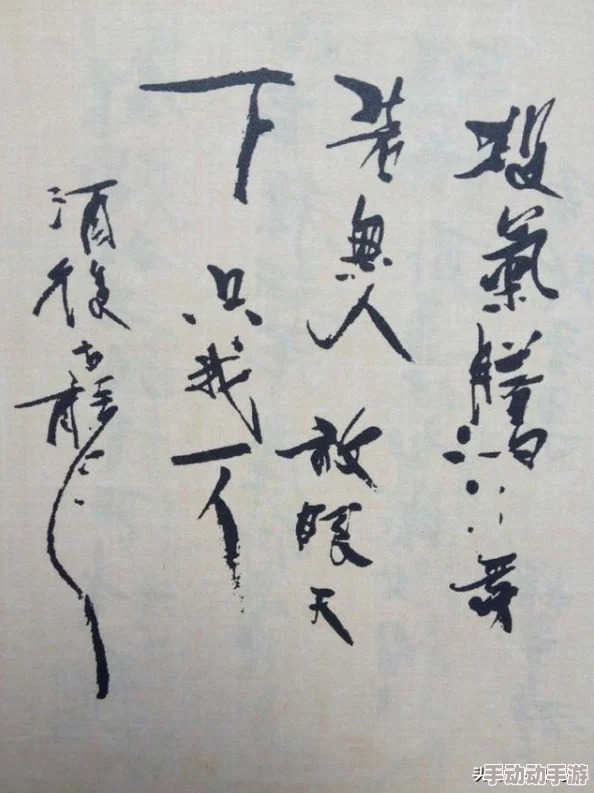 殺氣騰々旁
若無人 放眼天
下 只我一人
酒後古龍
手动动手游